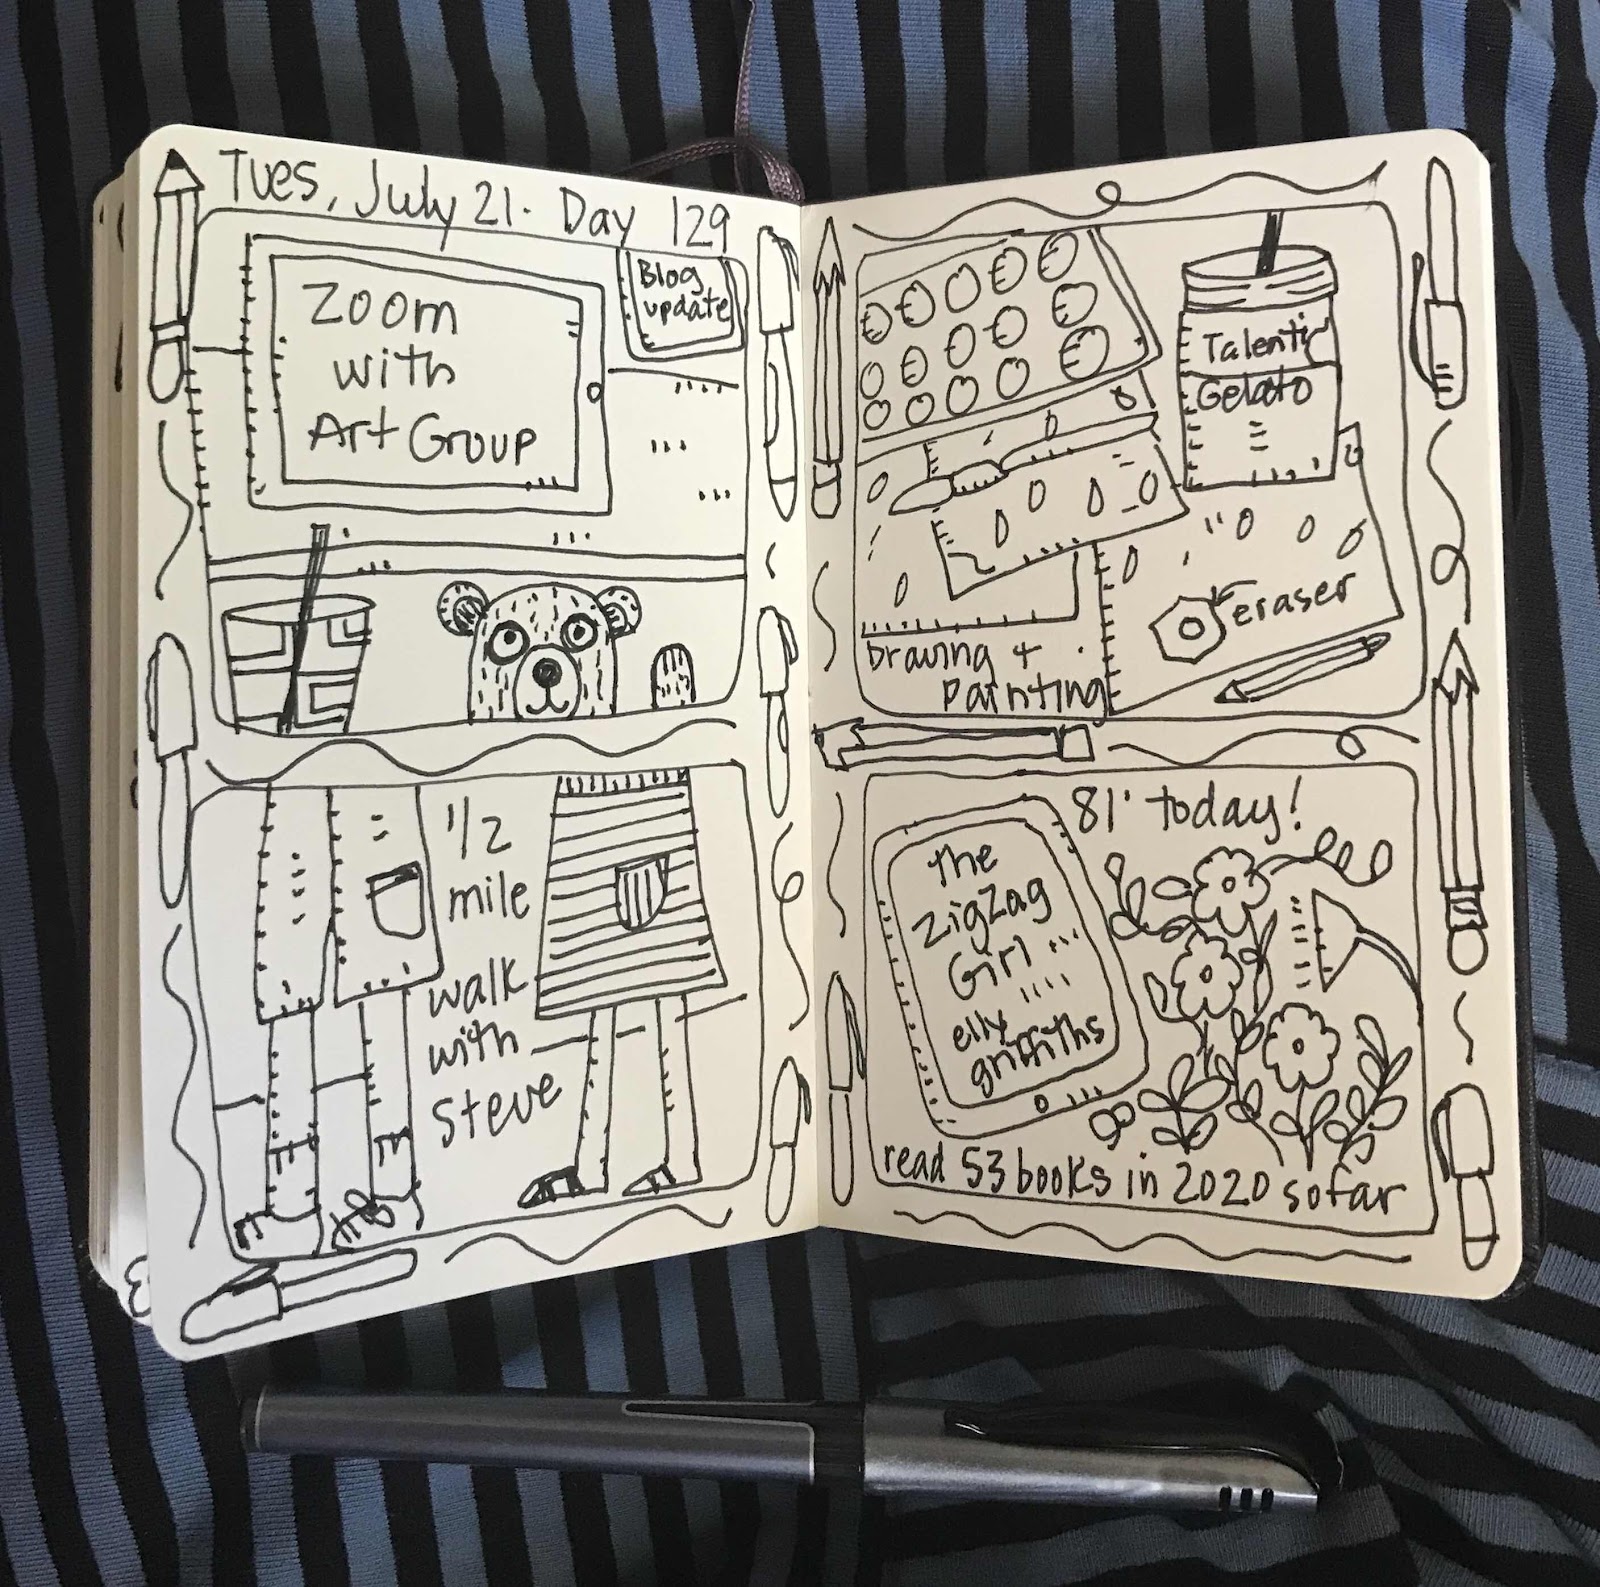 Tues, July 21. Day 129
Zoom
with
Art Group
Blog
update
1/2
mile
walk
with
Steve
Talenti
Gelato
eraser
Drawing +
painting
81° today!
the
ZigZag
Girl
elly
griffiths
read 53 books in 2020 so far